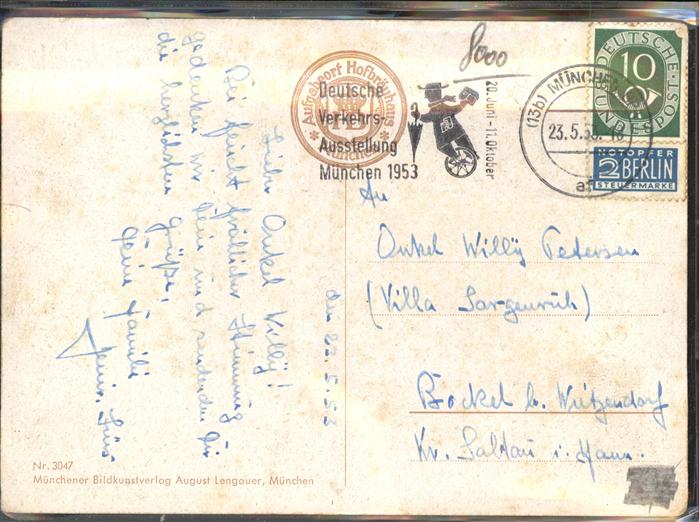 den 23.5.53
Lieber Onkel Willÿ!
Bei feucht fröhlicher Stimmung
gedenken wir Dein und senden Dir
die herzlichsten Grüße,
Deine Familie
8000
Aufgabeort Hofbräuhaus
HB
München
Deutsche
Verkehrs-
Ausstellung
München 1953
20. Juni - 11. Oktober
(13b) MÜNCHEN
23.5.53
DEUTSCHE
10
BUNDESPOST
NOTOPFER
2 BERLIN
STEUERMARKE
An
Onkel Willÿ Petersen
(Villa Sorgenruh)
Bockel b. Wietzendorf
Kr. Soltau i. Hann.
Nr. 3047
Münchener Bildkunstverlag August Lengauer, München